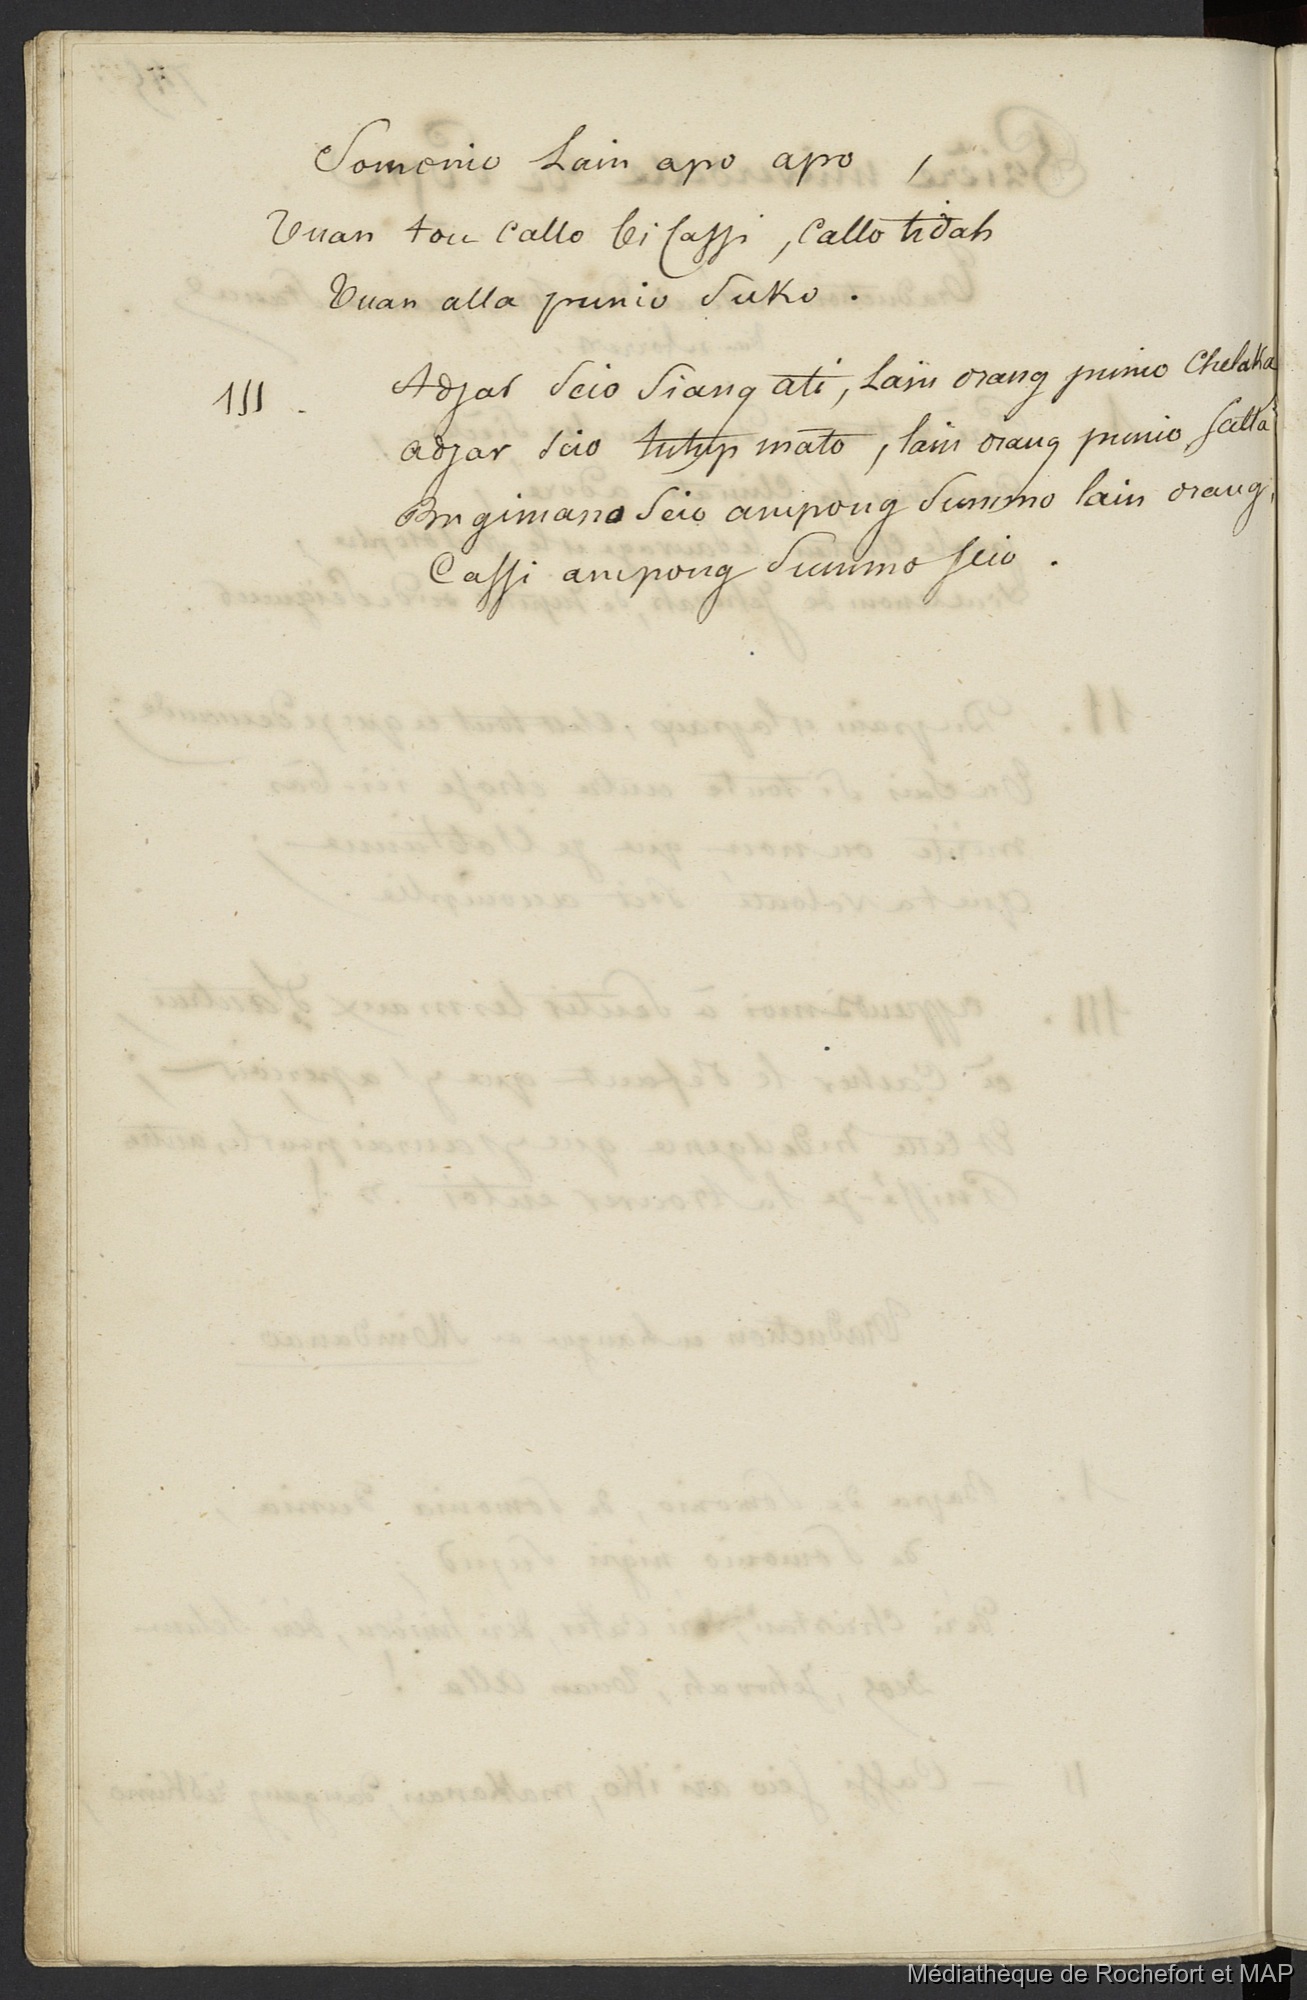 Somonio Lain apo apo ,
Tuan tou Callo bi Cassi , Callo tidah
Tuan alla punio Suko .
III . Adjar Seio Siang ati , Lain orang punio Chelaka
adjar Seio tutup mato , lain orang punio Salla
Bugimana Seio ampong Summo lain orang ,
Cassi ampong Summo Seio .
Médiathèque de Rochefort et MAP